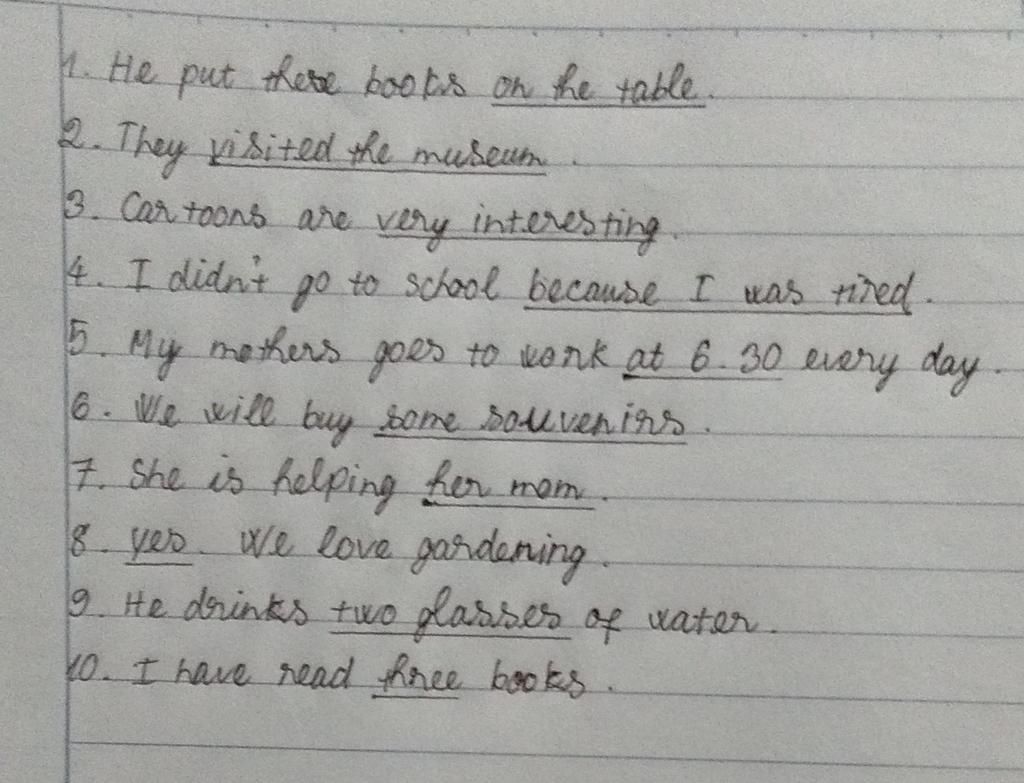 1. He put these books on the table.
2. They visited the museum.
3. Cartoons are very interesting.
4. I didn't go to school because I was tired.
5. My mothers goes to work at 6.30 every day.
6. We will buy some souvenirs.
7. She is helping her mom.
8. yes. We love gardening.
9. He drinks two glasses of water.
10. I have read three books.